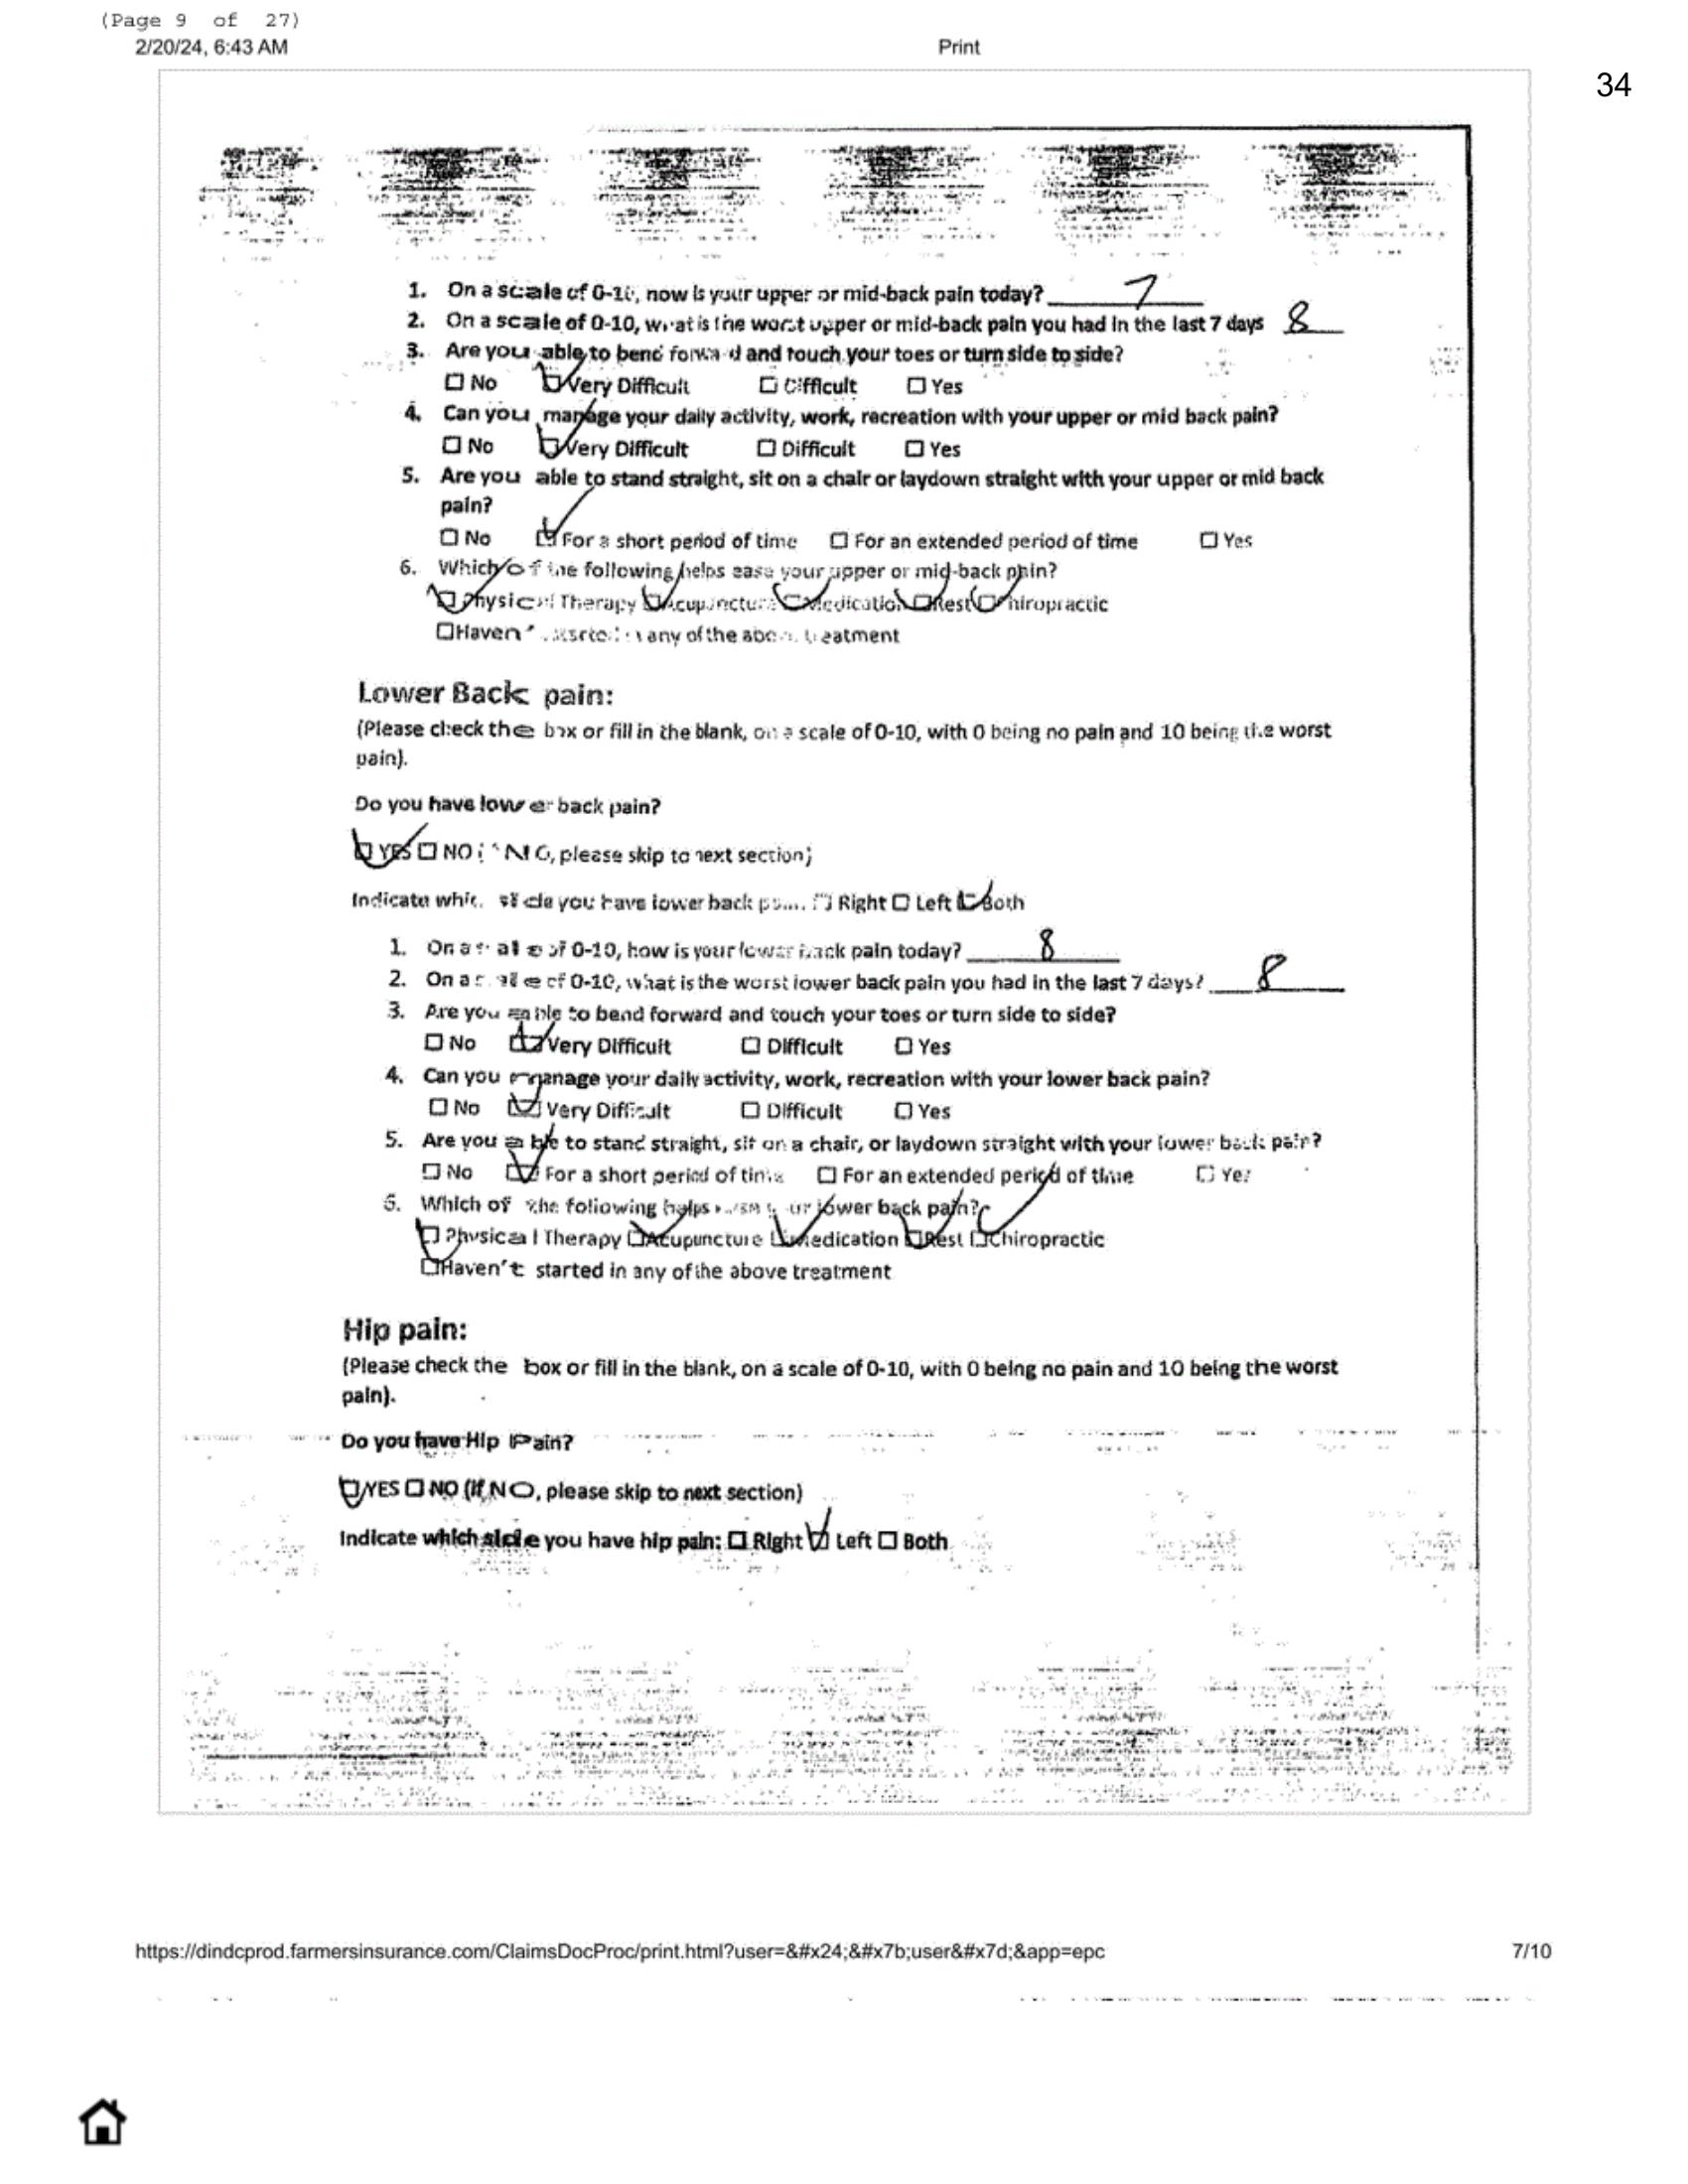 (Page 9 of 27)
2/20/24, 6:43 AM Print
34
1. On a scale of 0-10, how is your upper or mid-back pain today? 7
2. On a scale of 0-10, what is the worst upper or mid-back pain you had in the last 7 days 8
3. Are you able to bend forward and touch your toes or turn side to side?
☐ No ☑ Very Difficult ☐ Difficult ☐ Yes
4. Can you manage your daily activity, work, recreation with your upper or mid back pain?
☐ No ☑ Very Difficult ☐ Difficult ☐ Yes
5. Are you able to stand straight, sit on a chair or laydown straight with your upper or mid back
pain?
☐ No ☑ For a short period of time ☐ For an extended period of time ☐ Yes
6. Which of the following helps ease your upper or mid-back pain?
☑ Physical Therapy ☑ Acupuncture ☑ Medication ☑ Rest ☑ Chiropractic
☐ Haven't any of the above treatment
Lower Back pain:
(Please check the box or fill in the blank, on a scale of 0-10, with 0 being no pain and 10 being the worst
pain).
Do you have lower back pain?
☑ YES ☐ NO NO, please skip to next section)
Indicate side you have lower back ☐ Right ☐ Left ☑ Both
1. On a scale of 0-10, how is your lower back pain today? 8
2. On a scale of 0-10, what is the worst lower back pain you had in the last 7 days? 8
3. Are you able to bend forward and touch your toes or turn side to side?
☐ No ☑ Very Difficult ☐ Difficult ☐ Yes
4. Can you manage your daily activity, work, recreation with your lower back pain?
☐ No ☑ Very Difficult ☐ Difficult ☐ Yes
5. Are you able to stand straight, sit on a chair, or laydown straight with your lower back pain?
☐ No ☑ For a short period of time ☐ For an extended period of time ☐ Yes
6. Which of the following helps your lower back pain?
☑ Physical Therapy ☑ Acupuncture ☑ Medication ☑ Rest ☑ Chiropractic
☐ Haven't started in any of the above treatment
Hip pain:
(Please check the box or fill in the blank, on a scale of 0-10, with 0 being no pain and 10 being the worst
pain).
Do you have Hip Pain?
☑ YES ☐ NO (If NO, please skip to next section)
Indicate which side you have hip pain: ☐ Right ☑ Left ☐ Both
https://dindcprod.farmersinsurance.com/ClaimsDocProc/print.html?user=&#x24;&#x7b;user&#x7d;&app=epc 7/10